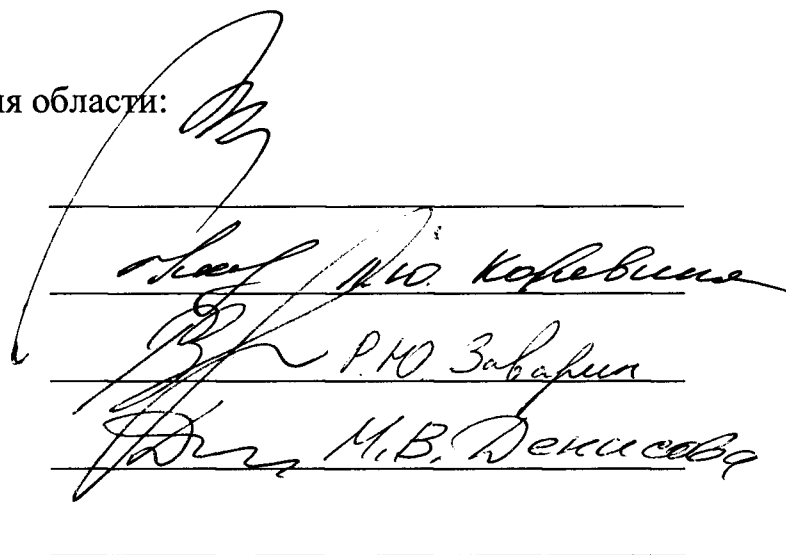 ия области:
Ю. Коревина
Р.Ю Заварин
М.В. Денисова